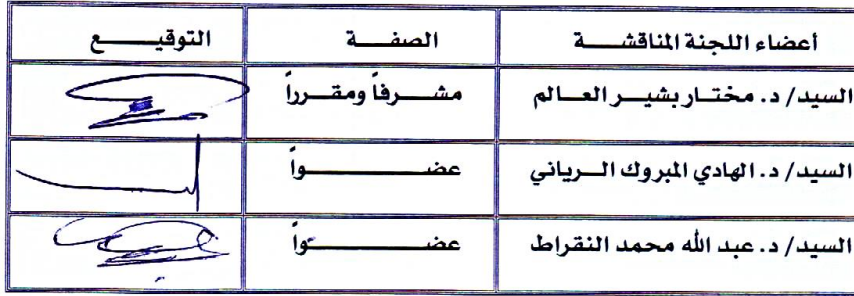 أعضاء اللجنة المناقشة الصفة التوقيع
السيد/ د. مختار بشير العالم مشرفاً ومقرراً
السيد/ د. الهادي المبروك الرياني عضواً
السيد/ د. عبد الله محمد النقراط عضواً